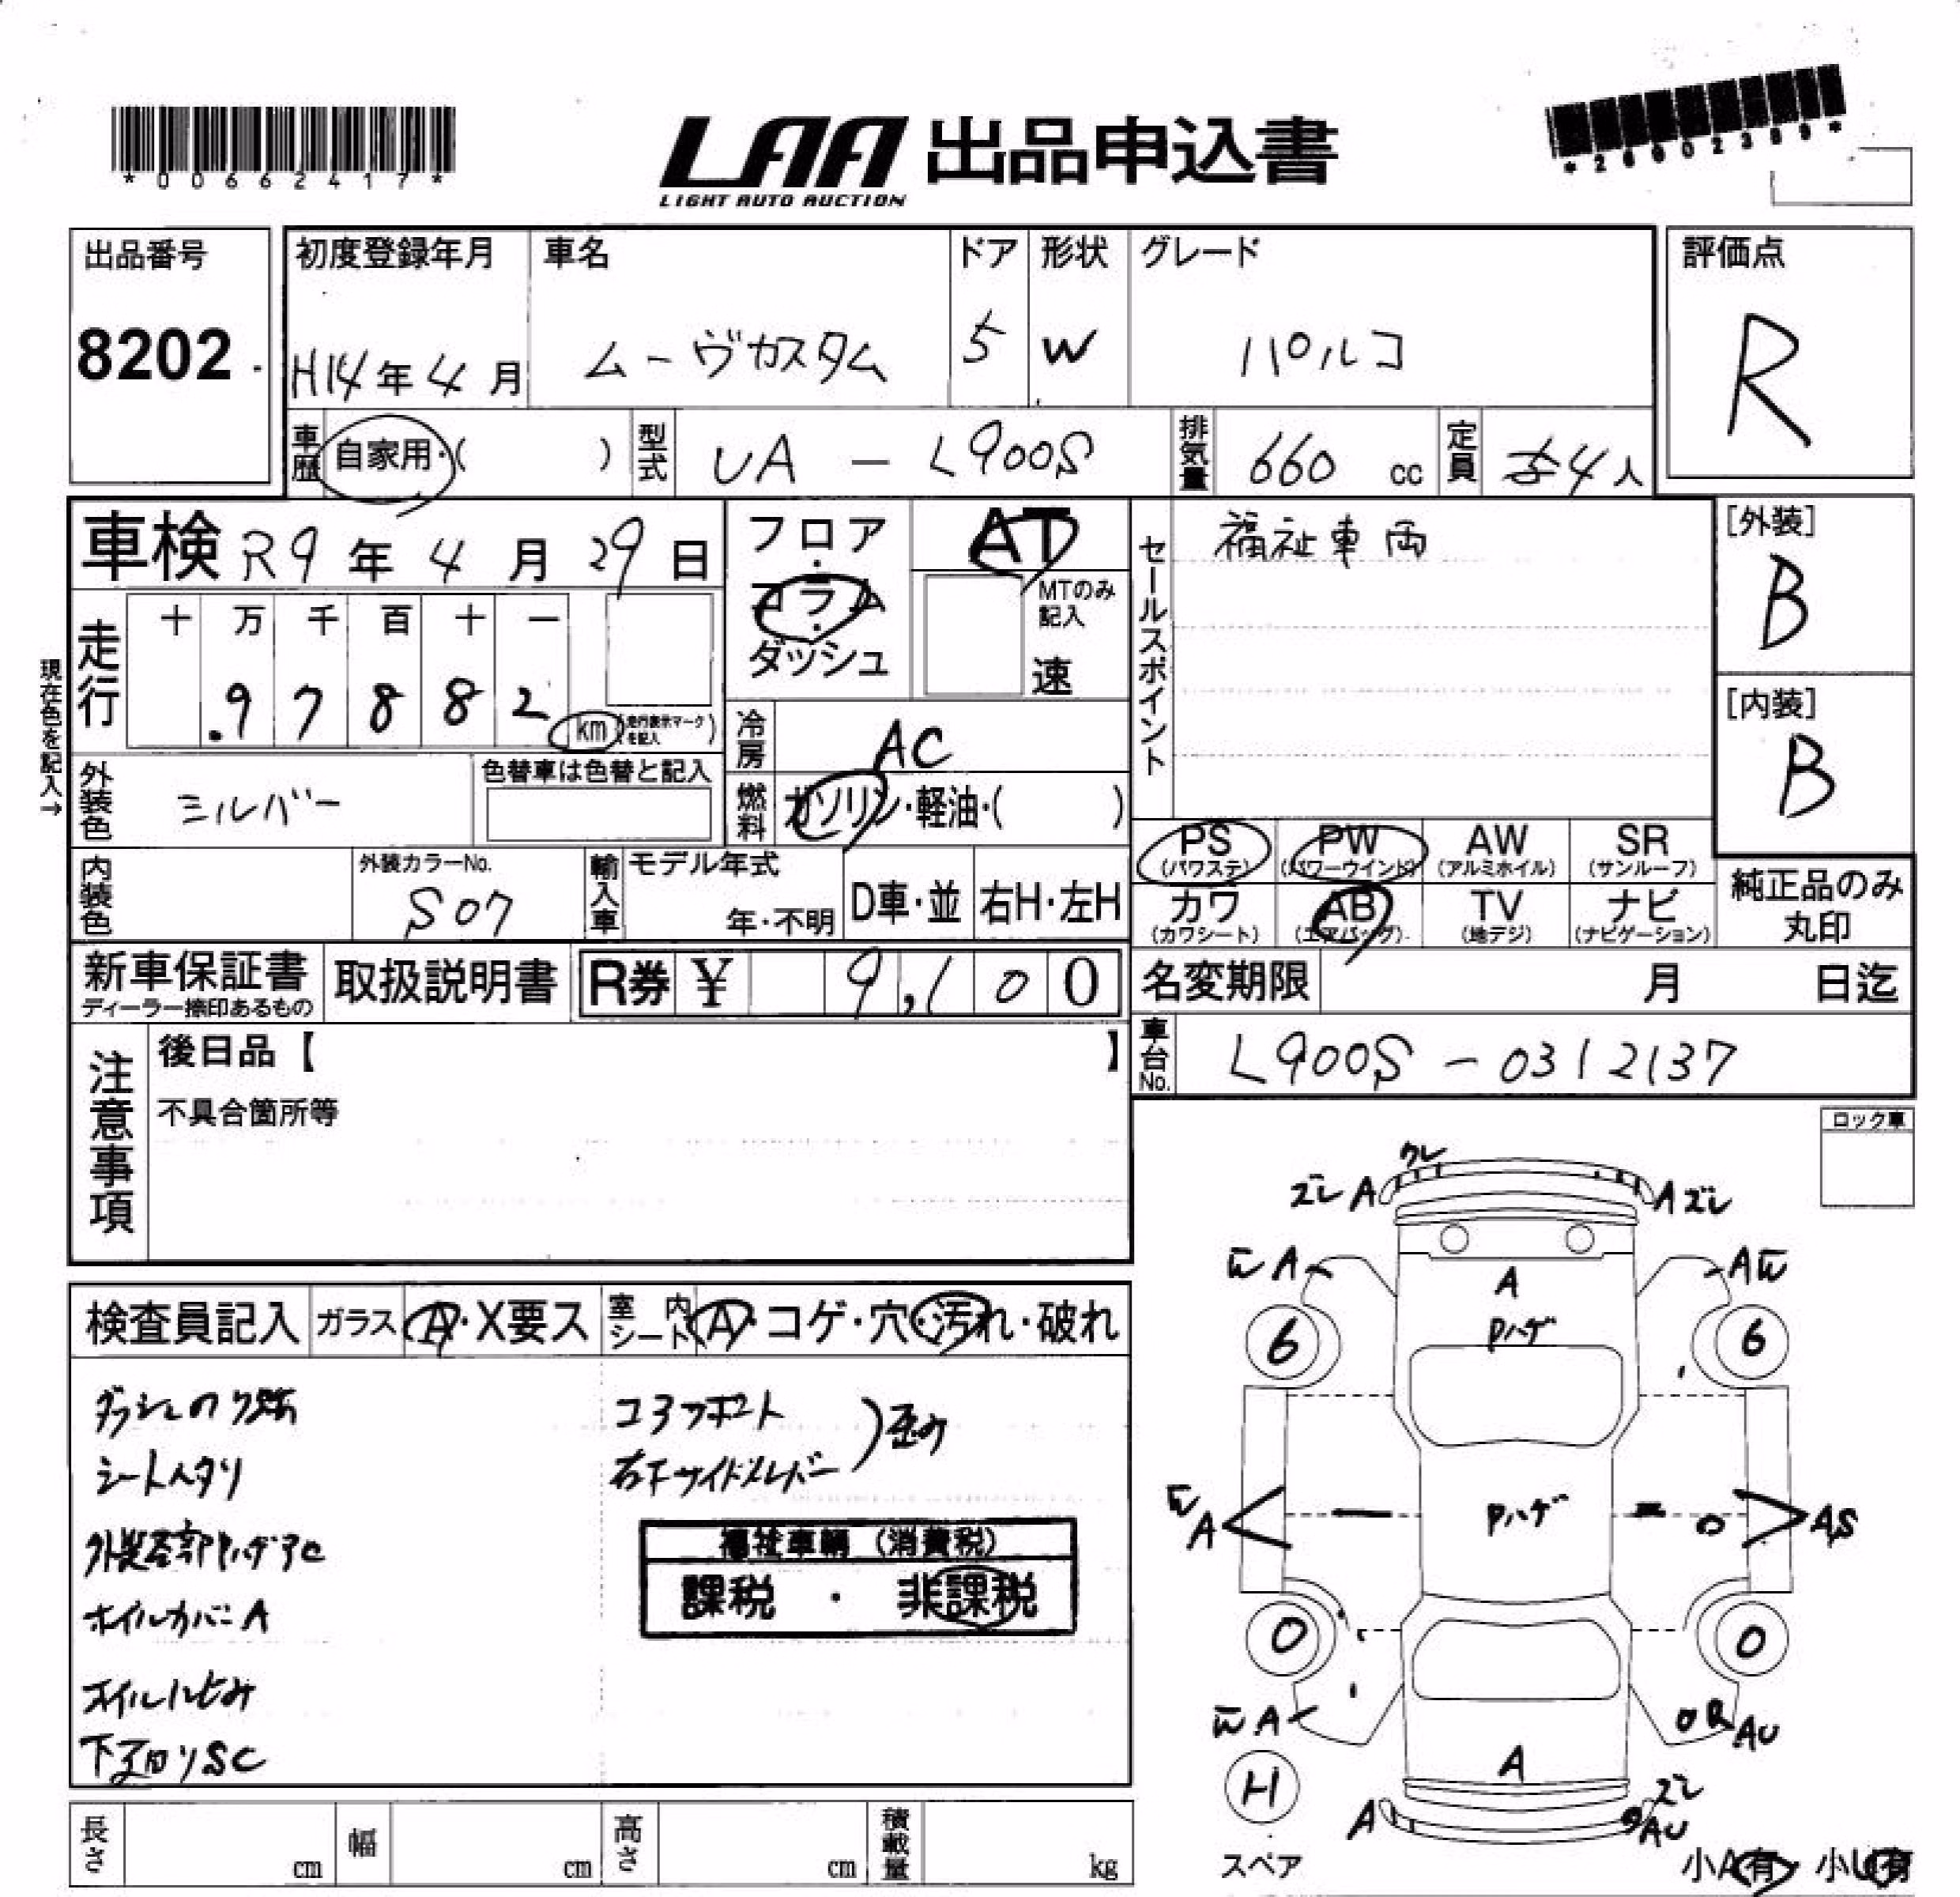 *00662417*
LAA 出品申込書
LIGHT AUTO AUCTION
*26002309*
出品番号
8202
初度登録年月
H14年4月
車名
ムーヴカスタム
ドア
5
形状
W
グレード
パルコ
評価点
R
車歴 自家用・( )
型式 UA - L900S
排気量 660 cc
定員 4人
車検 R9年4月29日
フロア・コラム・ダッシュ
AT
MTのみ記入
速
セールスポイント
福祉車両
[外装]
B
[内装]
B
現在色を記入→
走行
十 万 千 百 十 一
9 7 8 8 2
km (走行表示マークを記入)
冷房 AC
燃料 ガソリン・軽油・( )
外装色 シルバー
色替車は色替と記入
内装色
外装カラーNo.
S07
輸入車
モデル年式
年・不明
D車・並
右H・左H
PS (パワステ)
PW (パワーウインド)
AW (アルミホイル)
SR (サンルーフ)
カワ (カワシート)
AB (エアバッグ)
TV (地デジ)
ナビ (ナビゲーション)
純正品のみ丸印
新車保証書
ディーラー捺印あるもの
取扱説明書
R券 ¥ 9,100
名変期限 月 日迄
車台No. L900S - 0312137
注意事項
後日品【 】
不具合箇所等
ロック車
ワレ
ズレ A
A ズレ
A
A
A
Pハゲ
6
6
Pハゲ
A
AS
0
0
A
AU
A
H
スペア
A
ズレ
AU
小A有 小U有
検査員記入
ガラス A・X要ス
室内シート A・コゲ・穴・汚れ・破れ
ダッシュのり跡
シートヘタリ
外装各部Pハゲアc
ホイルカバーA
オイルにじみ
下廻りSC
コアサポート
右FサイドメンバーJ歪み
福祉車輌（消費税）
課税 ・ 非課税
長さ cm
幅 cm
高さ cm
積載量 kg